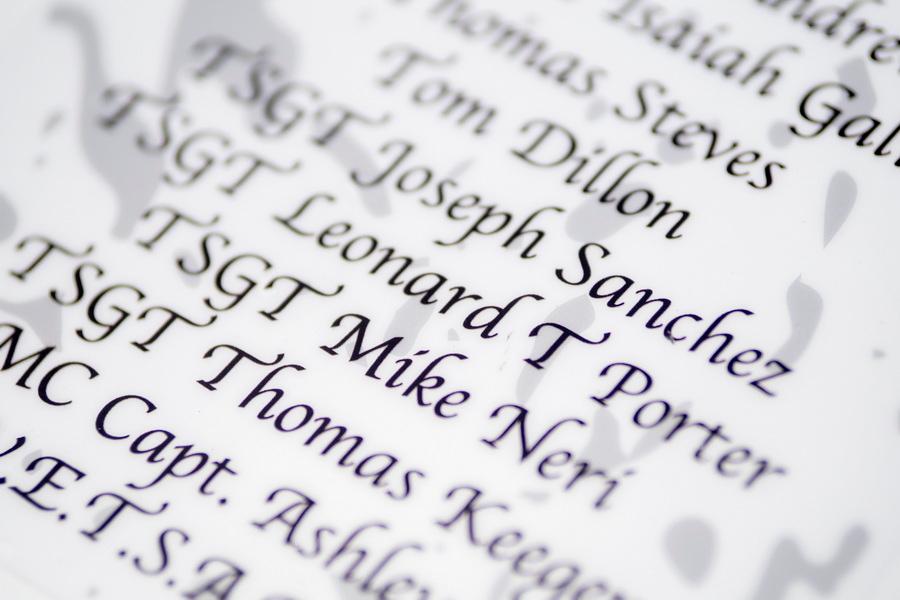 Isaiah
Thomas Steves
Tom Dillon
TSGT Joseph Sanchez
TSGT Leonard T Porter
TSGT Mike Neri
TSGT Thomas Keegan
MC Capt. Ashley
.E.T.S.A